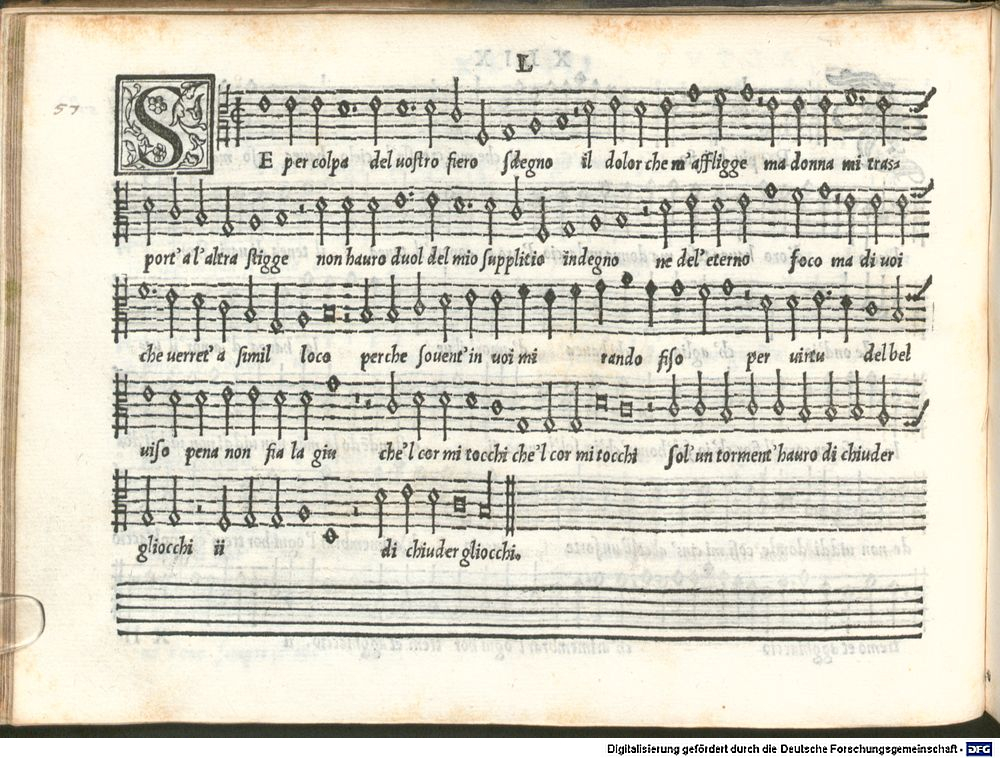 L
57
SE per colpa del uostro fiero sdegno il dolor che m'affligge ma donna mi tras
port' a l'altra stigge non hauro duol del mio supplitio indegno ne del'eterno foco ma di uoi
che uerret' a simil loco perche souent' in uoi mi rando fiso per uirtu del bel
uiso pena non fia la giu che'l cor mi tocchi che'l cor mi tocchi sol' un torment' hauro di chiuder
gliocchi ii di chiuder gliocchi.
Digitalisierung gefördert durch die Deutsche Forschungsgemeinschaft - DFG